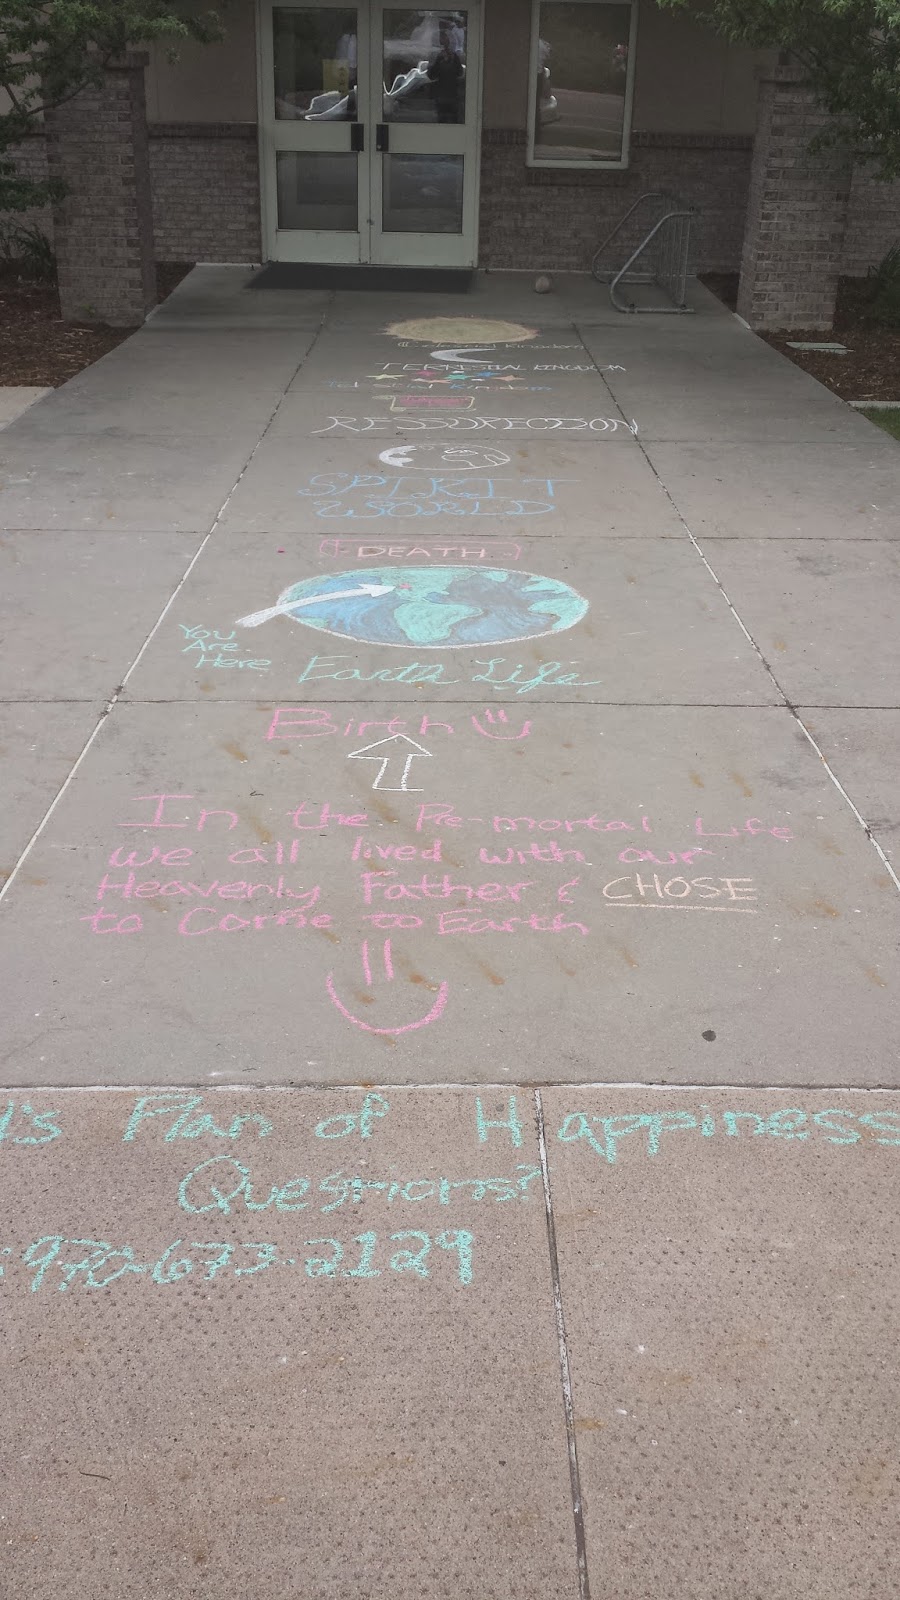 Celestial Kingdom
TERRESTIAL KINGDOM
Telestial Kingdom
RESURRECTION
SPIRIT
WORLD
DEATH
You
Are
Here
Earth Life
Birth
In the Pre-mortal Life
we all lived with our
Heavenly Father & CHOSE
to Come to Earth
's Plan of Happiness
Questions?
:970-673-2129